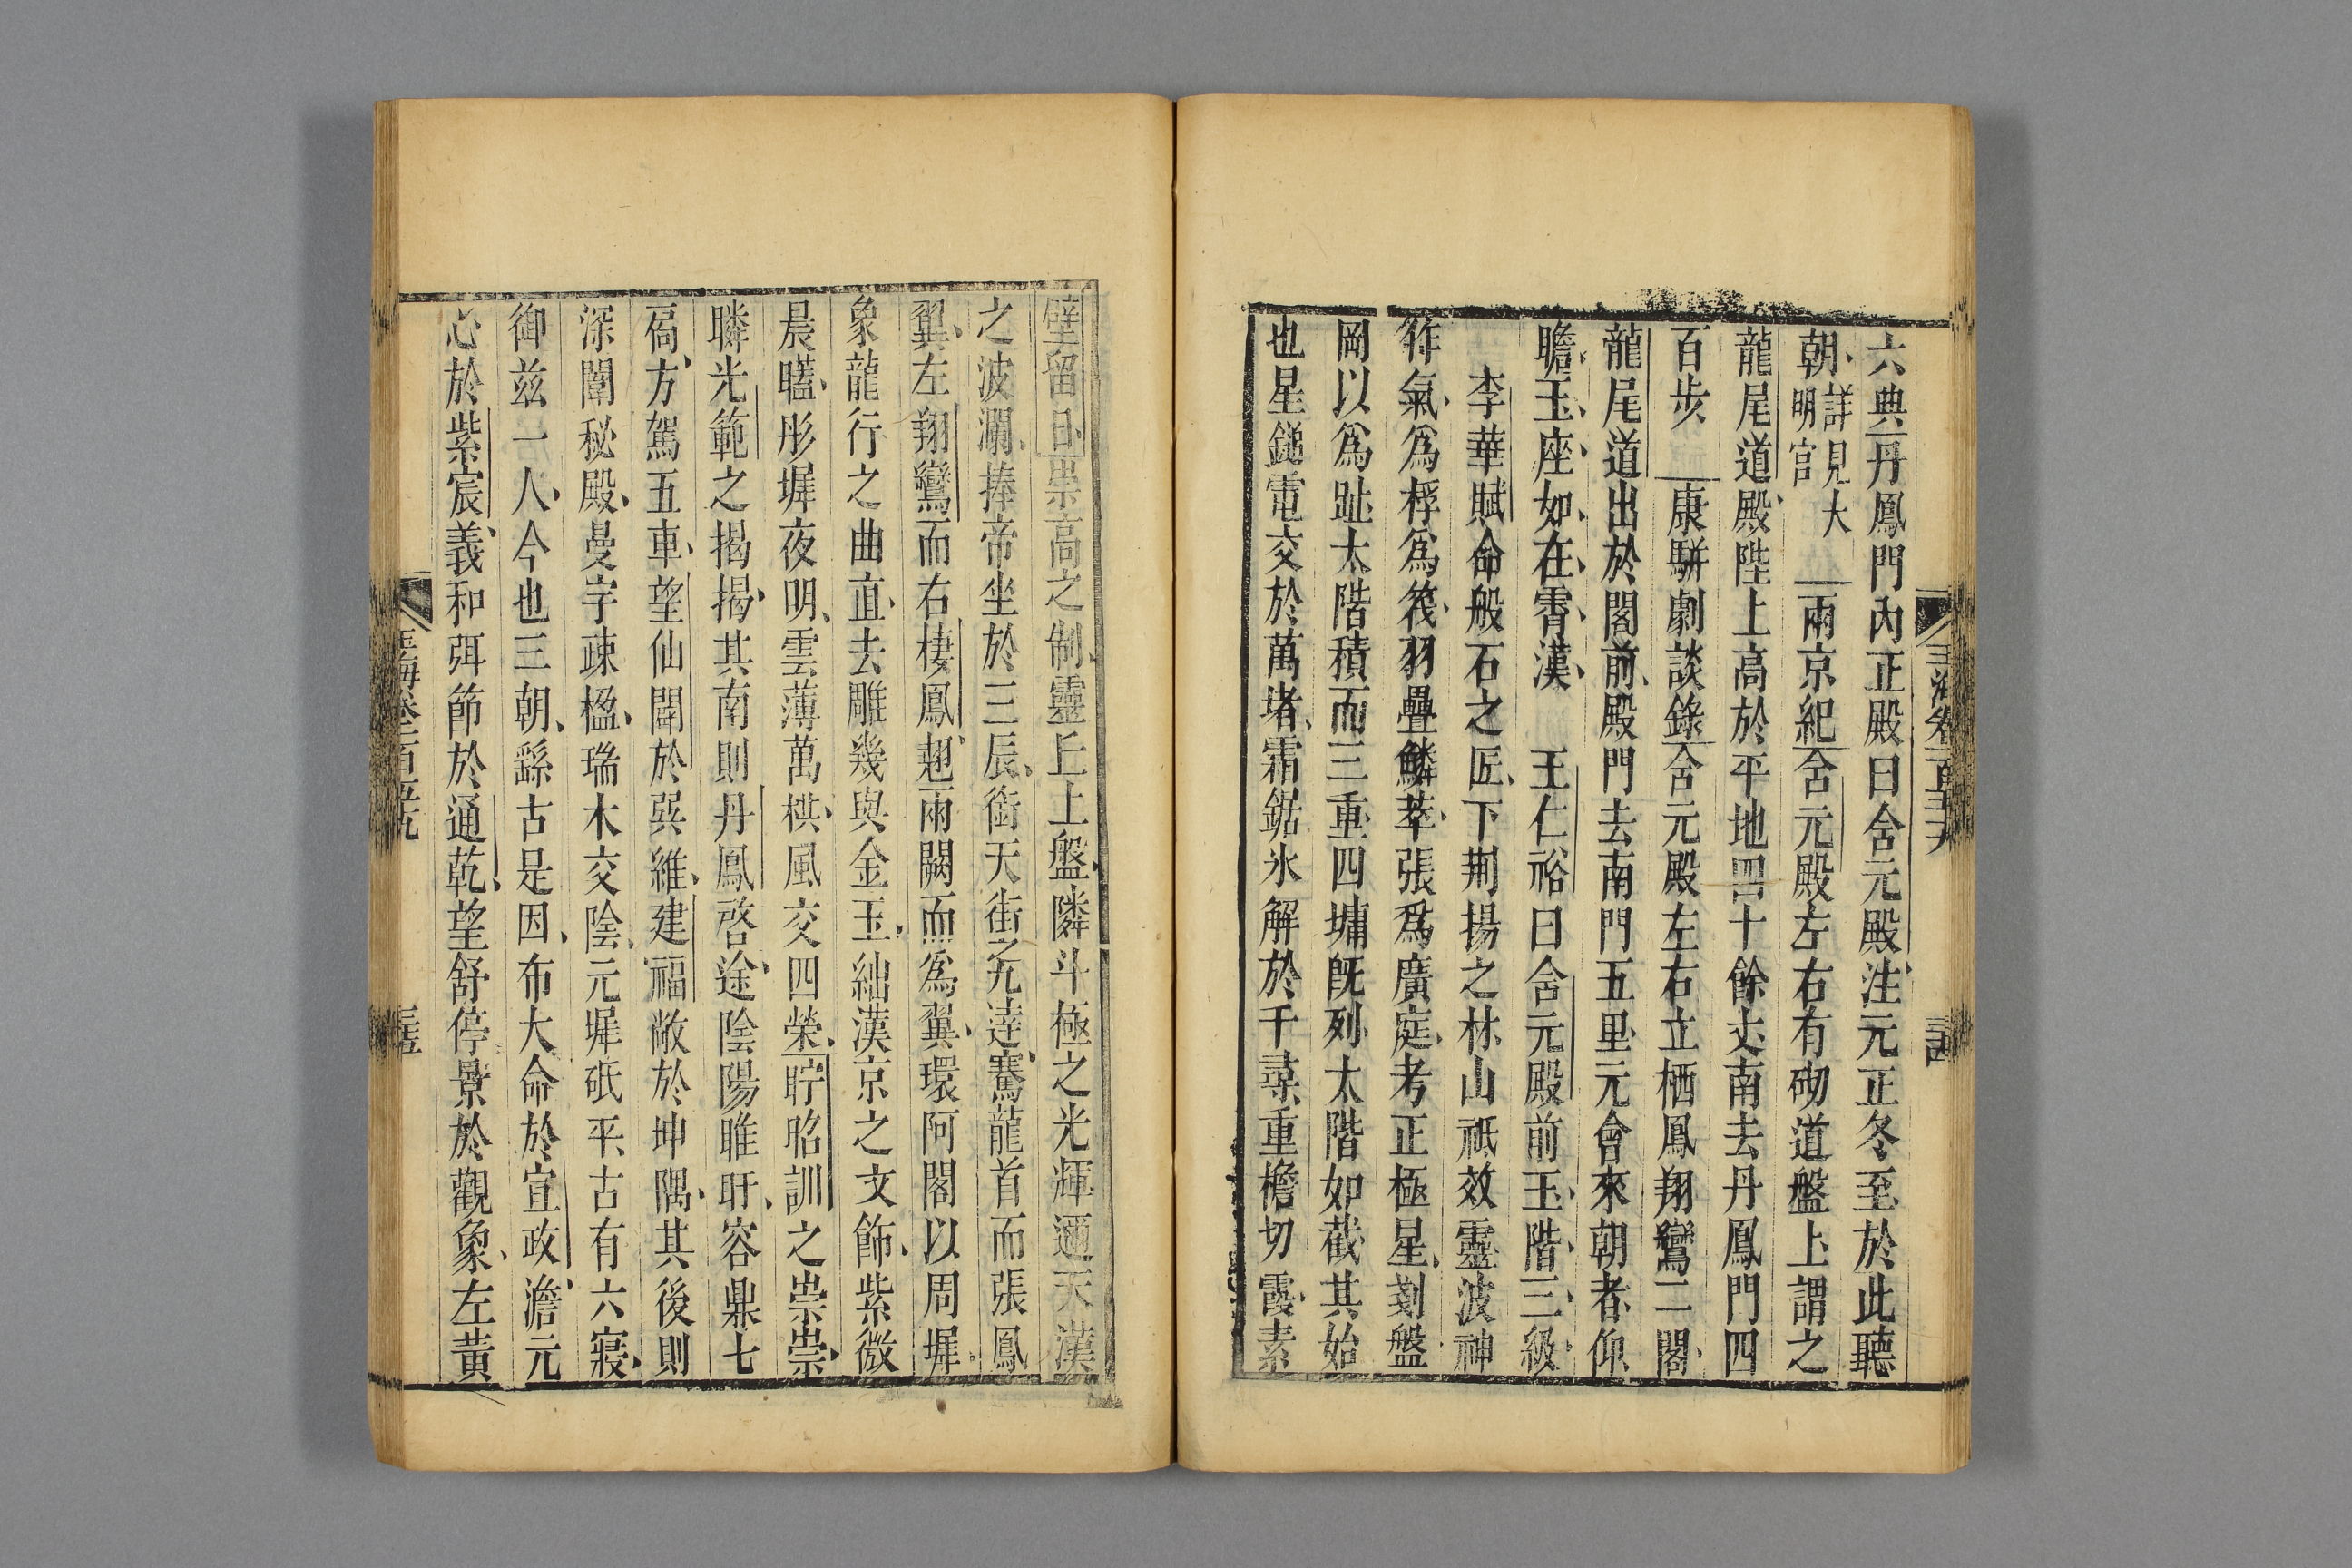 六典丹鳳門內正殿曰含元殿注元正冬至於此聽
朝詳見大明宮　兩京紀含元殿左右有砌道盤上謂之
龍尾道殿陛上高於平地四十餘丈南去丹鳳門四
百步　康駢劇談錄含元殿左右立栖鳳翔鸞二閣
龍尾道出於閣前殿門去南門五里元會來朝者仰
瞻玉座如在霄漢　王仁裕曰含元殿前玉階三級
李華賦命般石之匠下荆揚之林山祗效靈波神
作氣爲桴爲筏羽疊鱗萃張爲廣庭考正極星剗盤
岡以爲趾太階積而三重四墉既列太階如截其始
也星鎚電交於萬堵霜鋸氷解於千尋重檐切霞素
壁留日崇高之制靈丘上盤隣斗極之光輝邇天漢
之波瀾捧帝坐於三辰銜天街之九逵騫龍首而張鳳
翼左翔鸞而右棲鳳翹兩闕而爲翼環阿閣以周墀
象龍行之曲直去雕幾與金玉絀漢京之文飾紫微
晨曀彤墀夜明雲薄萬栱風交四榮昭訓之崇崇
光範之揭揭其南則丹鳳啓途陰陽睢盱容鼎七
方駕五車望仙闢於巽維建福敞於坤隅其後則
深闈秘殿曼宇疎楹瑞木交陰元墀砥平古有六寢
御兹一人今也三朝繇古是因布大命於宣政澹元
心於紫宸義和弭節於通乾望舒停景於觀象左黄